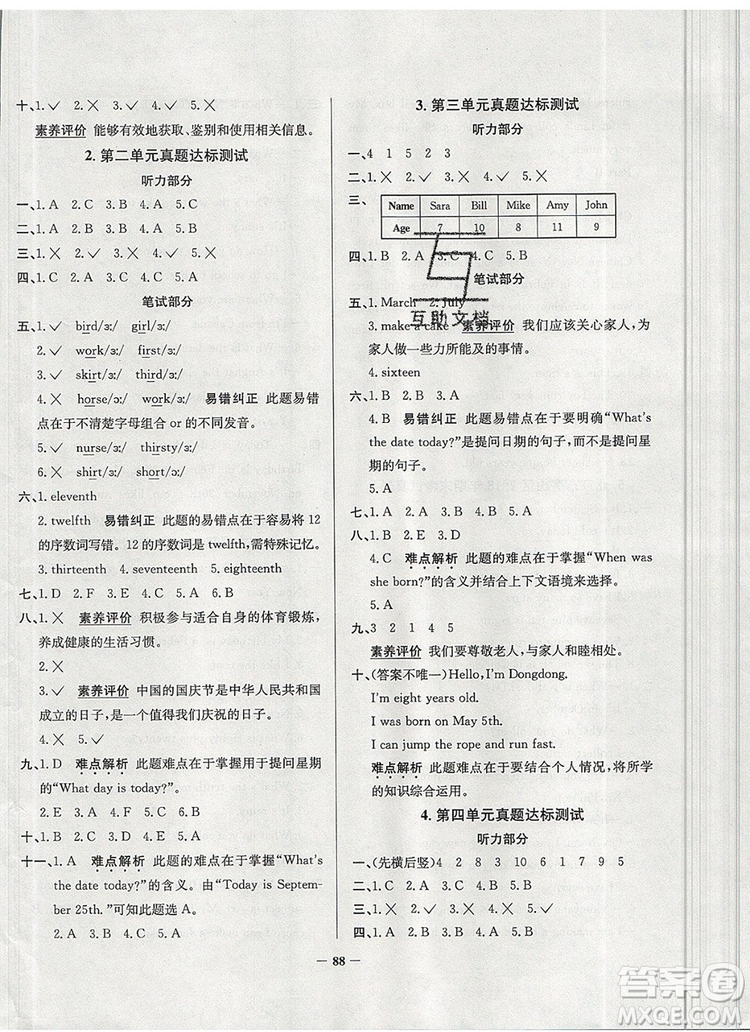 十、1. ✓ 2. ✕ 3. ✕ 4. ✓ 5. ✕
素养评价 能够有效地获取、鉴别和使用相关信息。
2. 第二单元真题达标测试
听力部分
一、1. A 2. C 3. B 4. A 5. C
二、1. B 2. A 3. A 4. B 5. A
三、1. ✓ 2. ✓ 3. ✕ 4. ✕ 5. ✓
四、1. A 2. C 3. B 4. A 5. C
笔试部分
五、1. ✓ bird/ɜː/ girl/ɜː/
2. ✓ work/ɜː/ first/ɜː/
3. ✓ skirt/ɜː/ thirsty/ɜː/
4. ✕ horse/ɔː/ work/ɜː/ 易错纠正 此题易错
点在于不清楚字母组合 or 的不同发音。
5. ✓ nurse/ɜː/ thirsty/ɜː/
6. ✕ shirt/ɜː/ short/ɔː/
六、1. eleventh
2. twelfth 易错纠正 此题的易错点在于容易将 12
的序数词写错。12 的序数词是 twelfth,需特殊记忆。
3. thirteenth 4. seventeenth 5. eighteenth
七、1. D 2. A 3. E 4. C 5. B
八、1. ✕ 素养评价 积极参与适合自身的体育锻炼,
养成健康的生活习惯。
2. ✕
3. ✓ 素养评价 中国的国庆节是中华人民共和国
成立的日子,是一个值得我们庆祝的日子。
4. ✕ 5. ✓
九、1. D 难点解析 此题难点在于掌握用于提问星期
的“What day is today?”。
2. E 3. A 4. C 5. B
十、1. C 2. B 3. A 4. A 5. B
十一、1. A 难点解析 此题的难点在于掌握“What's
the date today?”的含义。由“Today is Septem-
ber 25th.”可知此题选 A。
2. A 3. B 4. A 5. A
3. 第三单元真题达标测试
听力部分
一、4 1 5 2 3
二、1. ✕ 2. ✓ 3. ✓ 4. ✕ 5. ✓
三、 Name Sara Bill Mike Amy John
Age 7 10 8 11 9
四、1. B 2. A 3. C 4. C 5. B
笔试部分
五、1. March 2. July
3. make a cake 素养评价 我们应该关心家人,为
家人做一些力所能及的事情。
互助文档
4. sixteen
六、1. B 2. B 3. A
4. B 易错纠正 此题易错点在于要明确“What's
the date today?”是提问日期的句子,而不是提问星
期的句子。
5. A
七、1. A 2. A 3. A 4. B 5. A
八、1. B 2. E 3. D
4. C 难点解析 此题的难点在于掌握“When was
she born?”的含义并结合上下文语境来选择。
5. A
九、3 2 1 4 5
素养评价 我们要尊敬老人,与家人和睦相处。
十、(答案不唯一)Hello,I'm Dongdong.
I'm eight years old.
I was born on May 5th.
I can jump the rope and run fast.
难点解析 此题难点在于要结合个人情况,将所学
的知识综合运用。
4. 第四单元真题达标测试
听力部分
一、(先横后竖)4 2 8 3 10 6 1 7 9 5
二、1. C 2. A 3. B 4. C 5. B
三、1. ✕ 2. ✓ 3. ✓ 4. ✕ 5. ✓
四、1. B 2. A 3. C 4. A 5. B
— 88 —
答案圈
MXQE.COM